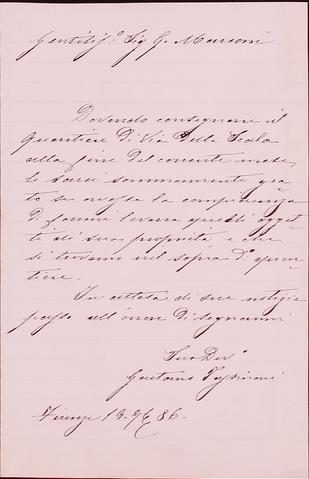 Gentilis.º Sig G. Marconi
Dovendo consegnare il
quartiere di Via della Scala
alla fine del corrente mese,
le sarei sommamente gra-
to se avesse la compiacenza
di farmi levare quelli ogget-
ti di sua proprietà, e che
si trovano nel sopra dº quar-
tiere.
In attesa di sue notizie
passo all'onore di segnarmi
Suo Devº
Gaetano
Firenze 19. 86.